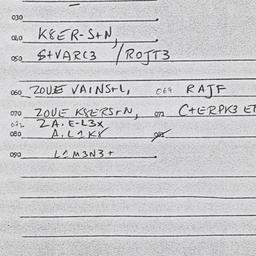 030
040 K8ER-S+N,
050 S+VARC3 / ROJT3
060 ZOUE VAINS+L, 064 RAJF
070 ZOUE K8ERS+N, 072 C+ERPK3 E
072 ZA.E-L3X
080 A.L1K8 082
090 L^M3N3+